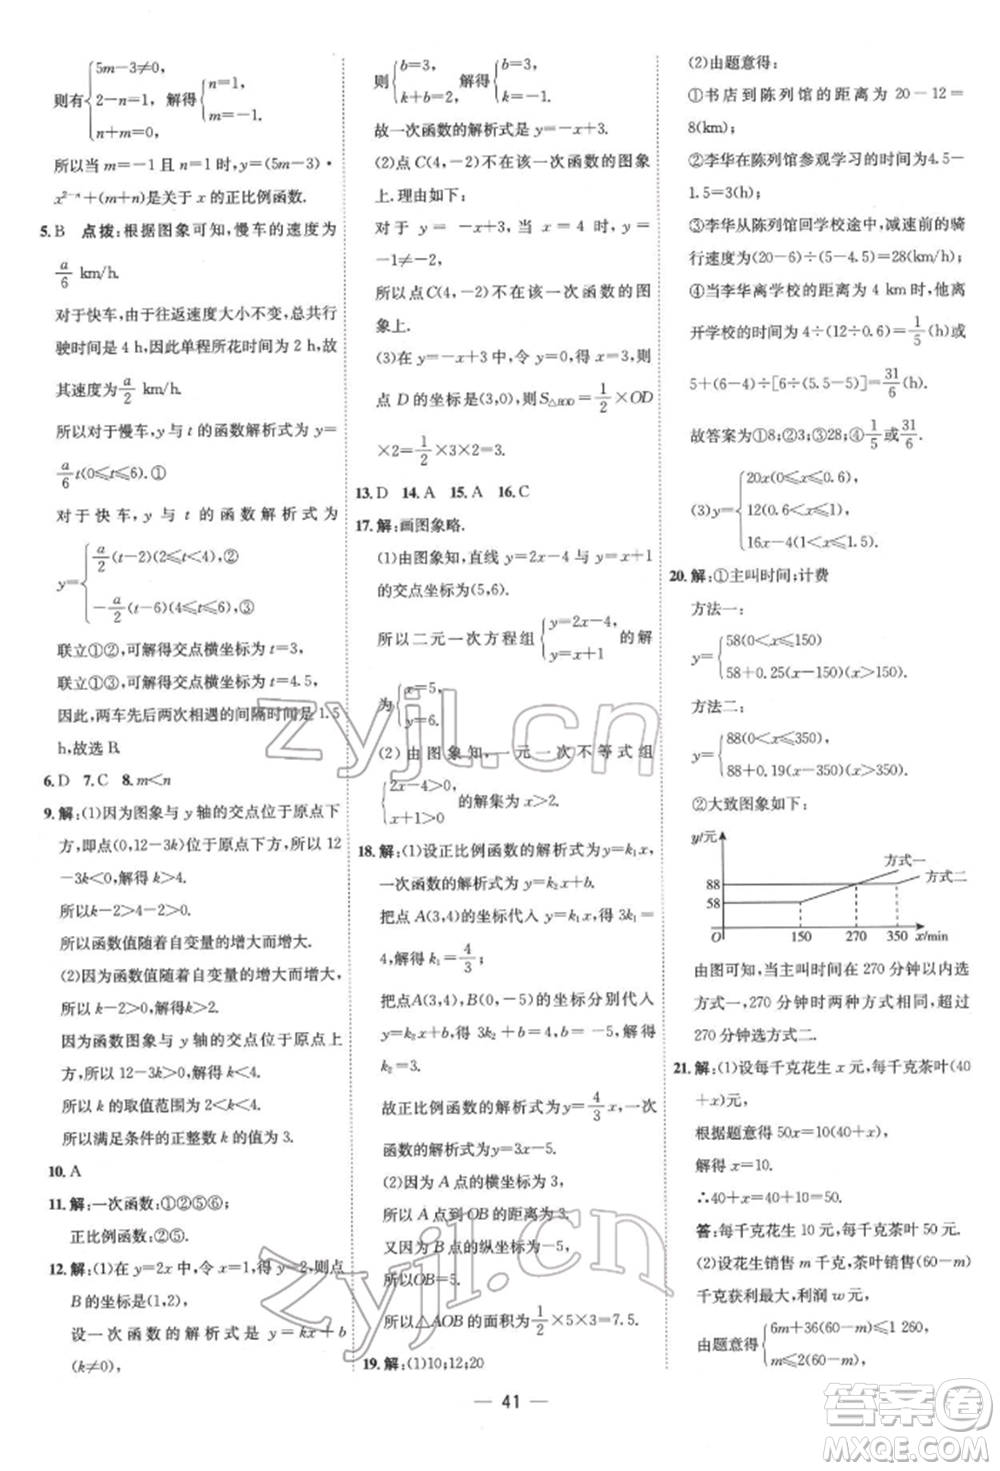 则有{5m-3≠0, 2-n=1, n+m=0, 解得{n=1, m=-1.
所以当 m=-1 且 n=1 时,y=(5m-3)·
x²⁻ⁿ+(m+n)是关于 x 的正比例函数.
5. B 点拨:根据图象可知,慢车的速度为
a/6 km/h.
对于快车,由于往返速度大小不变,总共行
驶时间是 4 h,因此单程所花时间为 2 h,故
其速度为 a/2 km/h.
所以对于慢车,y 与 t 的函数解析式为 y=
a/6 t(0≤t≤6).①
对于快车,y 与 t 的函数解析式为
y={a/2(t-2)(2≤t<4),②
-a/2(t-6)(4≤t≤6).③
联立①②,可求得交点横坐标为 t=3,
联立①③,可求得交点横坐标为 t=4.5,
因此,两车先后两次相遇的间隔时间是 1.5
h,故选 B.
6. D 7. C 8. m<n
9. 解:(1)因为图象与 y 轴的交点位于原点下
方,即点(0,12-3k)位于原点下方,所以 12
-3k<0,解得 k>4.
所以 k-2>4-2>0.
所以函数值随着自变量的增大而增大.
(2)因为函数值随着自变量的增大而增大,
所以 k-2>0,解得 k>2.
因为函数图象与 y 轴的交点位于原点上
方,所以 12-3k>0,解得 k<4.
所以 k 的取值范围为 2<k<4.
所以满足条件的正整数 k 的值为 3.
10. A
11. 解:一次函数:①②⑤⑥;
正比例函数:②⑤.
12. 解:(1)在 y=2x 中,令 x=1,得 y=2,则点
B 的坐标是(1,2),
设一次函数的解析式是 y=kx+b
(k≠0),
则{b=3, k+b=2, 解得{b=3, k=-1.
故一次函数的解析式是 y=-x+3.
(2)点 C(4,-2)不在该一次函数的图象
上.理由如下:
对于 y=-x+3,当 x=4 时,y=
-1≠-2,
所以点 C(4,-2)不在该一次函数的图
象上.
(3)在 y=-x+3 中,令 y=0,得 x=3,则
点 D 的坐标是(3,0),S△BOD=1/2×OD
×2=1/2×3×2=3.
13. D 14. A 15. A 16. C
17. 解:画图象略.
(1)由图象知,直线 y=2x-4 与 y=x+1
的交点坐标为(5,6).
所以二元一次方程组{y=2x-4, y=x+1 的解
为{x=5, y=6.
(2)由图象知,一元一次不等式组
{2x-4>0, x+1>0 的解集为 x>2.
18. 解:(1)设正比例函数的解析式为 y=k₁x,
一次函数的解析式为 y=k₂x+b.
把点 A(3,4)的坐标代入 y=k₁x,得 3k₁=
4,解得 k₁=4/3;
把点 A(3,4),B(0,-5)的坐标分别代入
y=k₂x+b,得 3k₂+b=4,b=-5,解得
k₂=3.
故正比例函数的解析式为 y=4/3 x,一次
函数的解析式为 y=3x-5.
(2)因为 A 点的横坐标为 3,
所以 A 点到 OB 的距离为 3.
又因为 B 点的纵坐标为-5,
所以 OB=5.
所以△AOB 的面积为 1/2×5×3=7.5.
19. 解:(1)10;12;20
(2)由题意得:
①书店到陈列馆的距离为 20-12=
8(km);
②李华在陈列馆参观学习的时间为 4.5-
1.5=3(h);
③李华从陈列馆回学校途中,减速前的骑
行速度为(20-6)÷(5-4.5)=28(km/h);
④当李华离学校的距离为 4 km 时,他离
开学校的时间为 4÷(12÷0.6)=1/5(h)或
5+(6-4)÷[6÷(5.5-5)]=31/6(h).
故答案为①8;②3;③28;④1/5 或 31/6.
(3)y={20x(0≤x≤0.6),
12(0.6<x≤1),
16x-4(1<x≤1.5).
20. 解:①主叫时间;计费
方法一:
y={58(0<x≤150)
58+0.25(x-150)(x>150).
方法二:
y={88(0<x≤350)
88+0.19(x-350)(x>350).
②大致图象如下:
y/元
方式一
方式二
88
58
O 150 270 350 x/min
由图可知,当主叫时间在 270 分钟以内选
方式一,270 分钟时两种方式相同,超过
270 分钟选方式二.
21. 解:(1)设每千克花生 x 元,每千克茶叶(40
+x)元,
根据题意得 50x=10(40+x),
解得 x=10.
∴40+x=40+10=50.
答:每千克花生 10 元,每千克茶叶 50 元.
(2)设花生销售 m 千克,茶叶销售(60-m)
千克获利最大,利润 w 元.
由题意得{6m+36(60-m)≤1 260, m≤2(60-m),
41
zyjl.cn
zyjl.cn
答案圈
MXQE.COM